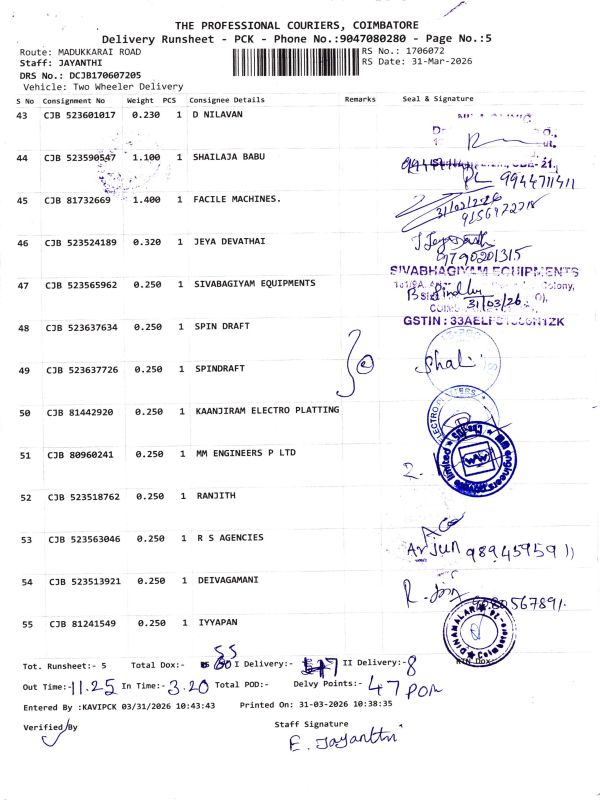 THE PROFESSIONAL COURIERS, COIMBATORE
Delivery Runsheet - PCK - Phone No.:9047080280 - Page No.:5
Route: MADUKKARAI ROAD
RS No.: 1706072
Staff: JAYANTHI
RS Date: 31-Mar-2026
DRS No.: DCJB170607205
Vehicle: Two Wheeler Delivery
S No Consignment No Weight PCS Consignee Details Remarks Seal & Signature
43 CJB 523601017 0.230 1 D NILAVAN
44 CJB 523590547 1.100 1 SHAILAJA BABU
9944711411
45 CJB 81732669 1.400 1 FACILE MACHINES.
31/03/2026
46 CJB 523524189 0.320 1 JEYA DEVATHAI
9790201315
47 CJB 523565962 0.250 1 SIVABAGIYAM EQUIPMENTS
SIVABHAGIYAM EQUIPMENTS
Colony,
31/03/26
48 CJB 523637634 0.250 1 SPIN DRAFT
49 CJB 523637726 0.250 1 SPINDRAFT
Shali
50 CJB 81442920 0.250 1 KAANJIRAM ELECTRO PLATTING
51 CJB 80960241 0.250 1 MM ENGINEERS P LTD
52 CJB 523518762 0.250 1 RANJITH
53 CJB 523563046 0.250 1 R S AGENCIES
Arjun
54 CJB 523513921 0.250 1 DEIVAGAMANI
55 CJB 81241549 0.250 1 IYYAPAN
DINAMALAR
Coimbatore
Tot. Runsheet:- 5 Total Dox:- 55 I Delivery:- 47 II Delivery:- 8
Out Time:- 11.25 In Time:- 3.20 Total POD:- Delvy Points:- 47 POD
Entered By :KAVIPCK 03/31/2026 10:43:43 Printed On: 31-03-2026 10:38:35
Verified By
Staff Signature
E. Jayanthi